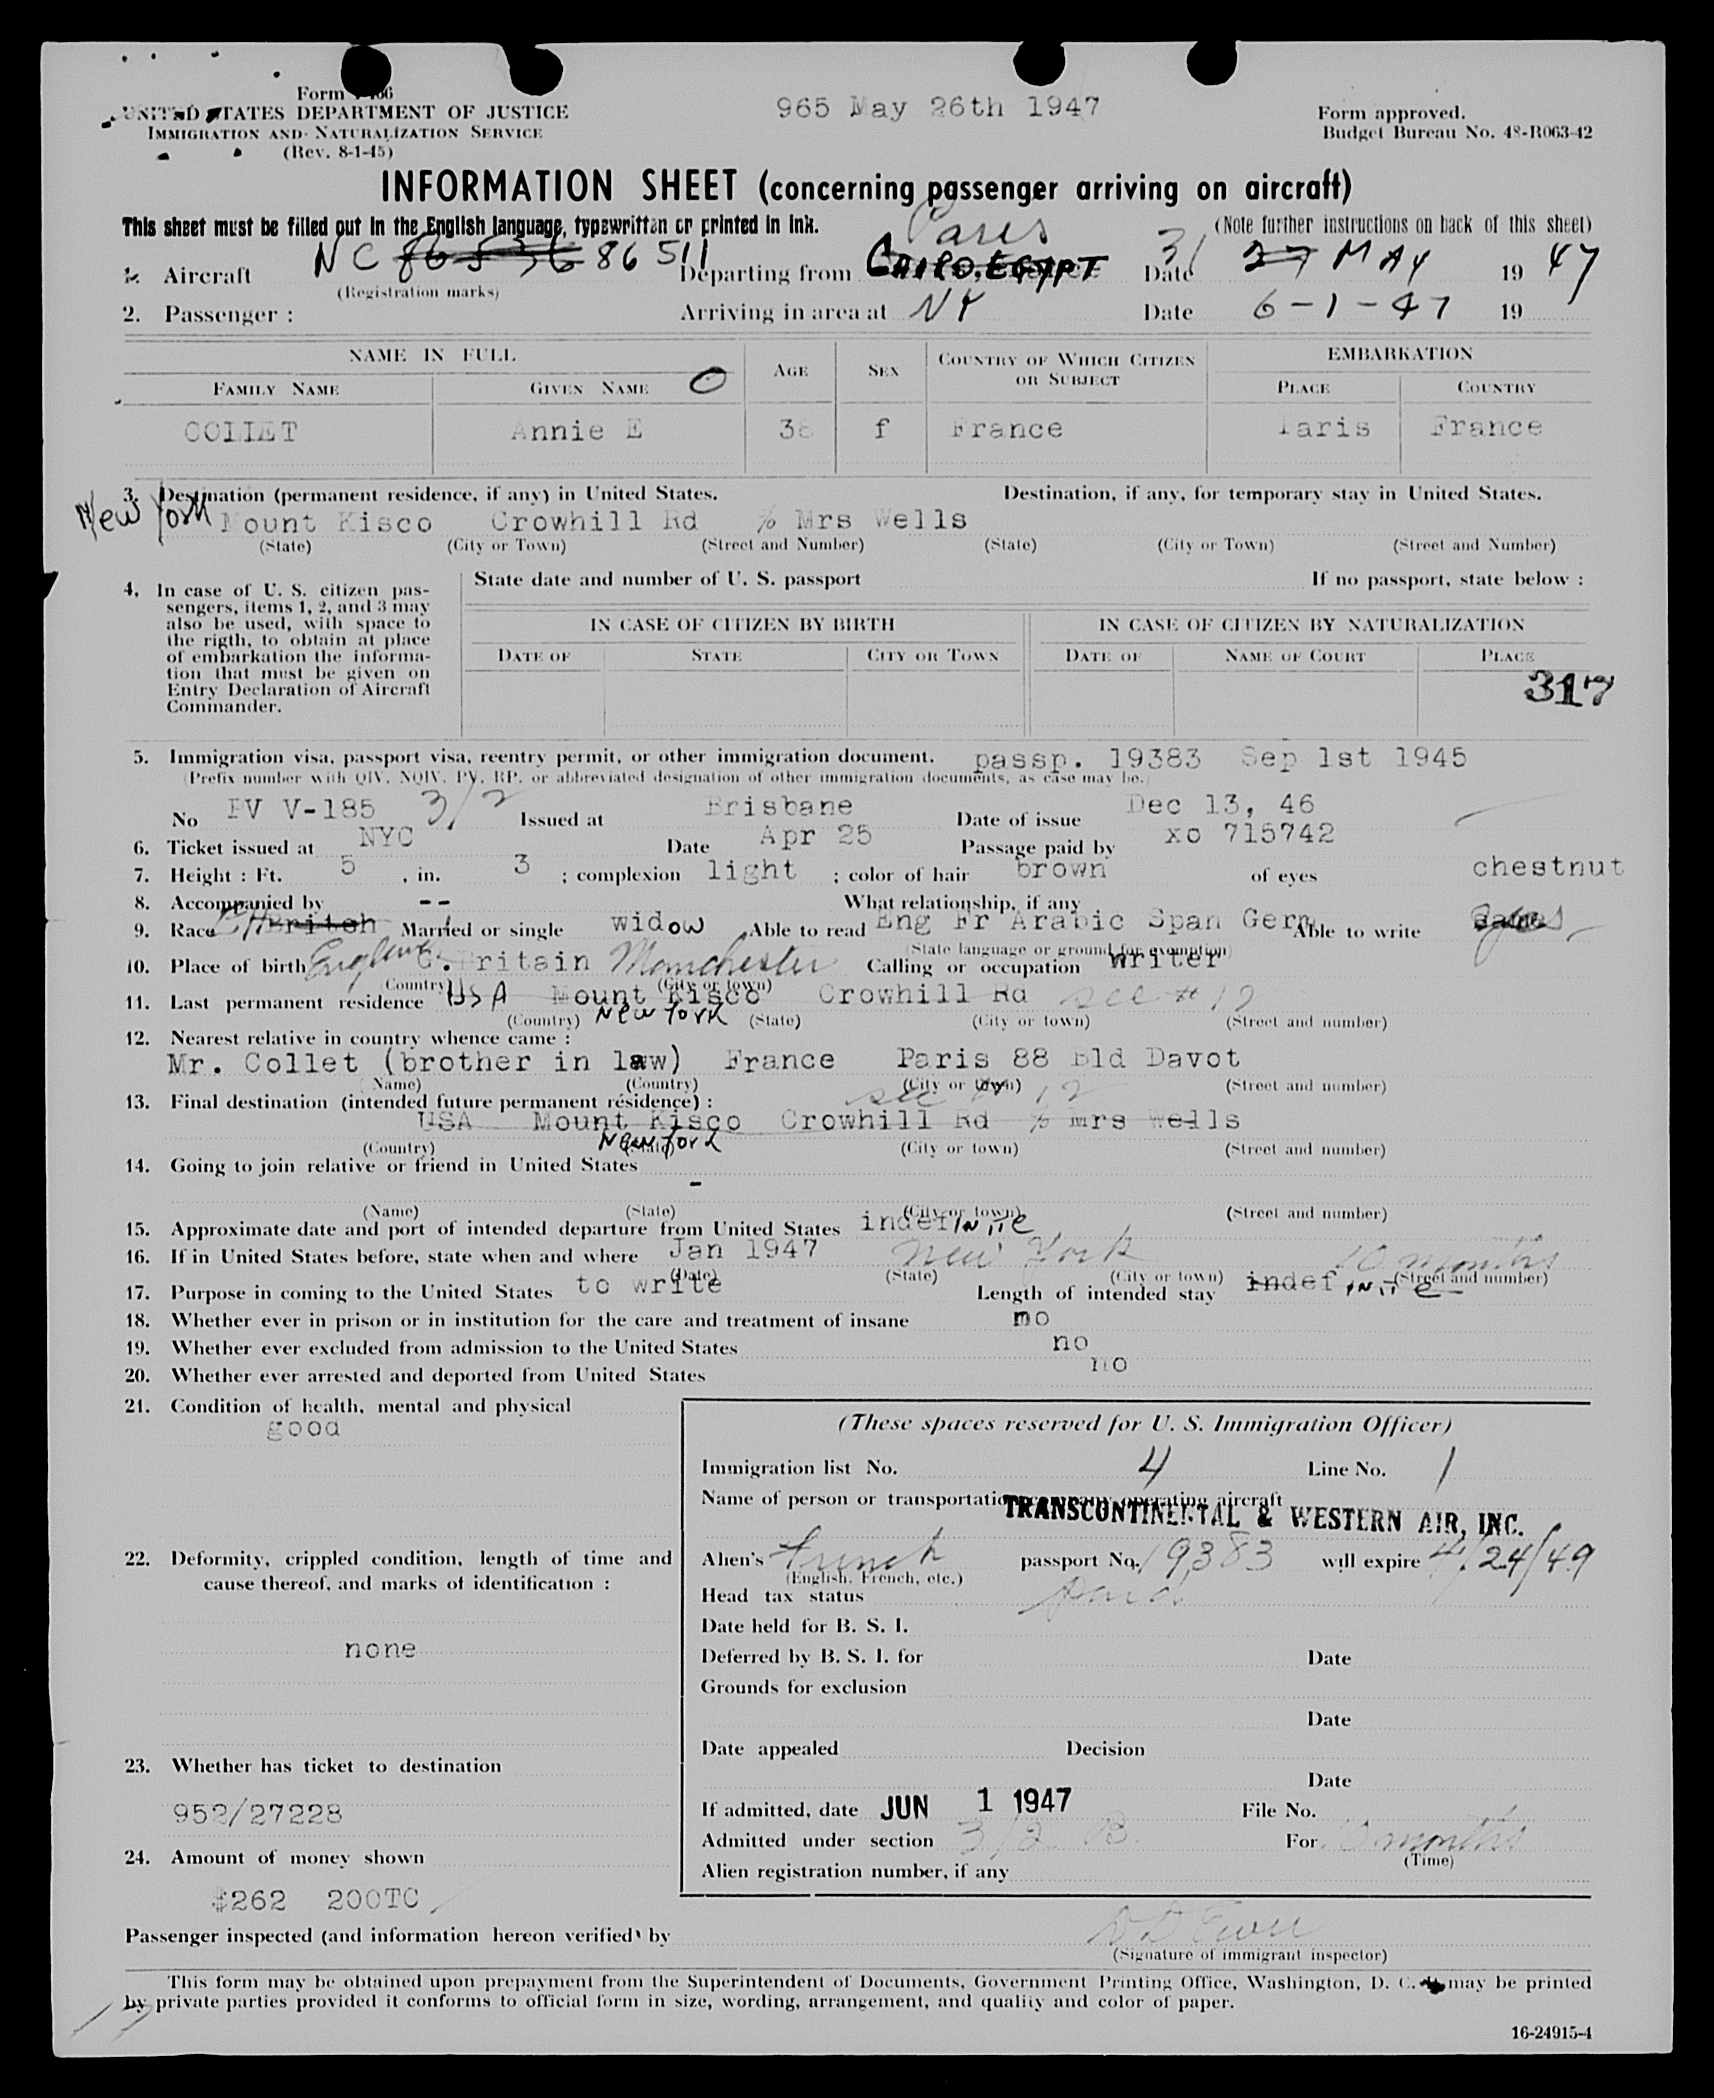 Form I-466
UNITED STATES DEPARTMENT OF JUSTICE
IMMIGRATION AND NATURALIZATION SERVICE
(Rev. 8-1-45)
965 May 26th 1947
Form approved.
Budget Bureau No. 43-R063-42
INFORMATION SHEET (concerning passenger arriving on aircraft)
This sheet must be filled out in the English language, typewritten or printed in ink.
(Note further instructions on back of this sheet)
Paris
1. Aircraft NC 86536 86511 Departing from CAIRO, EGYPT Date 31 27 MAY 19 47
(Registration marks)
2. Passenger : Arriving in area at NY Date 6-1-47 19
NAME IN FULL AGE SEX COUNTRY OF WHICH CITIZEN OR SUBJECT EMBARKATION
FAMILY NAME GIVEN NAME O PLACE COUNTRY
COLLET Annie E 38 f France Paris France
3. Destination (permanent residence, if any) in United States. Destination, if any, for temporary stay in United States.
New York Mount Kisco Crowhill Rd % Mrs Wells
(State) (City or Town) (Street and Number) (State) (City or Town) (Street and Number)
4. In case of U. S. citizen pas-
sengers, items 1, 2, and 3 may
also be used, with space to
the rigth, to obtain at place
of embarkation the informa-
tion that must be given on
Entry Declaration of Aircraft
Commander.
State date and number of U. S. passport If no passport, state below :
IN CASE OF CITIZEN BY BIRTH IN CASE OF CITIZEN BY NATURALIZATION
DATE OF STATE CITY OR TOWN DATE OF NAME OF COURT PLACE
317
5. Immigration visa, passport visa, reentry permit, or other immigration document. passp. 19383 Sep 1st 1945
(Prefix number with QIV, NQIV, PV, RP, or abbreviated designation of other immigration documents, as case may be.)
No PV V-185 3/2 Issued at Brisbane Date of issue Dec 13, 46
6. Ticket issued at NYC Date Apr 25 Passage paid by xo 715742
7. Height : Ft. 5 , in. 3 ; complexion light ; color of hair brown of eyes chestnut
8. Accompanied by -- What relationship, if any
9. Race British Married or single widow Able to read Eng Fr Arabic Span Germ Able to write same yes
(State language or ground for exemption)
10. Place of birth England G. Britain Manchester Calling or occupation writer
(Country) (City or town)
11. Last permanent residence USA Mount Kisco Crowhill Rd see # 12
(Country) New York (State) (City or town) (Street and number)
12. Nearest relative in country whence came :
Mr. Collet (brother in law) France Paris 88 Bld Davot
(Name) (Country) (City or town) (Street and number)
13. Final destination (intended future permanent résidence) : see # 12
USA Mount Kisco Crowhill Rd % Mrs Wells
(Country) New York (State) (City or town) (Street and number)
14. Going to join relative or friend in United States
-
(Name) (State) (City or town) (Street and number)
15. Approximate date and port of intended departure from United States indefINITE
16. If in United States before, state when and where Jan 1947 New York 10 months
(Date) (State) (City or town) (Street and number)
17. Purpose in coming to the United States to write Length of intended stay indefINITE
18. Whether ever in prison or in institution for the care and treatment of insane no
19. Whether ever excluded from admission to the United States no
20. Whether ever arrested and deported from United States no
21. Condition of health, mental and physical
good
22. Deformity, crippled condition, length of time and
cause thereof, and marks of identification :
none
23. Whether has ticket to destination
952/27228
24. Amount of money shown
$262 200TC
(These spaces reserved for U. S. Immigration Officer)
Immigration list No. 4 Line No. 1
Name of person or transportation company operating aircraft
TRANSCONTINENTAL & WESTERN AIR, INC.
Alien's French passport No. 19383 will expire 4/24/49
(English, French, etc.)
Head tax status paid
Date held for B. S. I.
Deferred by B. S. I. for Date
Grounds for exclusion
Date
Date appealed Decision
Date
If admitted, date JUN 1 1947 File No.
Admitted under section 3/2 B. For 10 months
(Time)
Alien registration number, if any
Passenger inspected (and information hereon verified) by
(Signature of immigrant inspector)
This form may be obtained upon prepayment from the Superintendent of Documents, Government Printing Office, Washington, D. C. It may be printed
by private parties provided it conforms to official form in size, wording, arrangement, and quality and color of paper.
16-24915-4